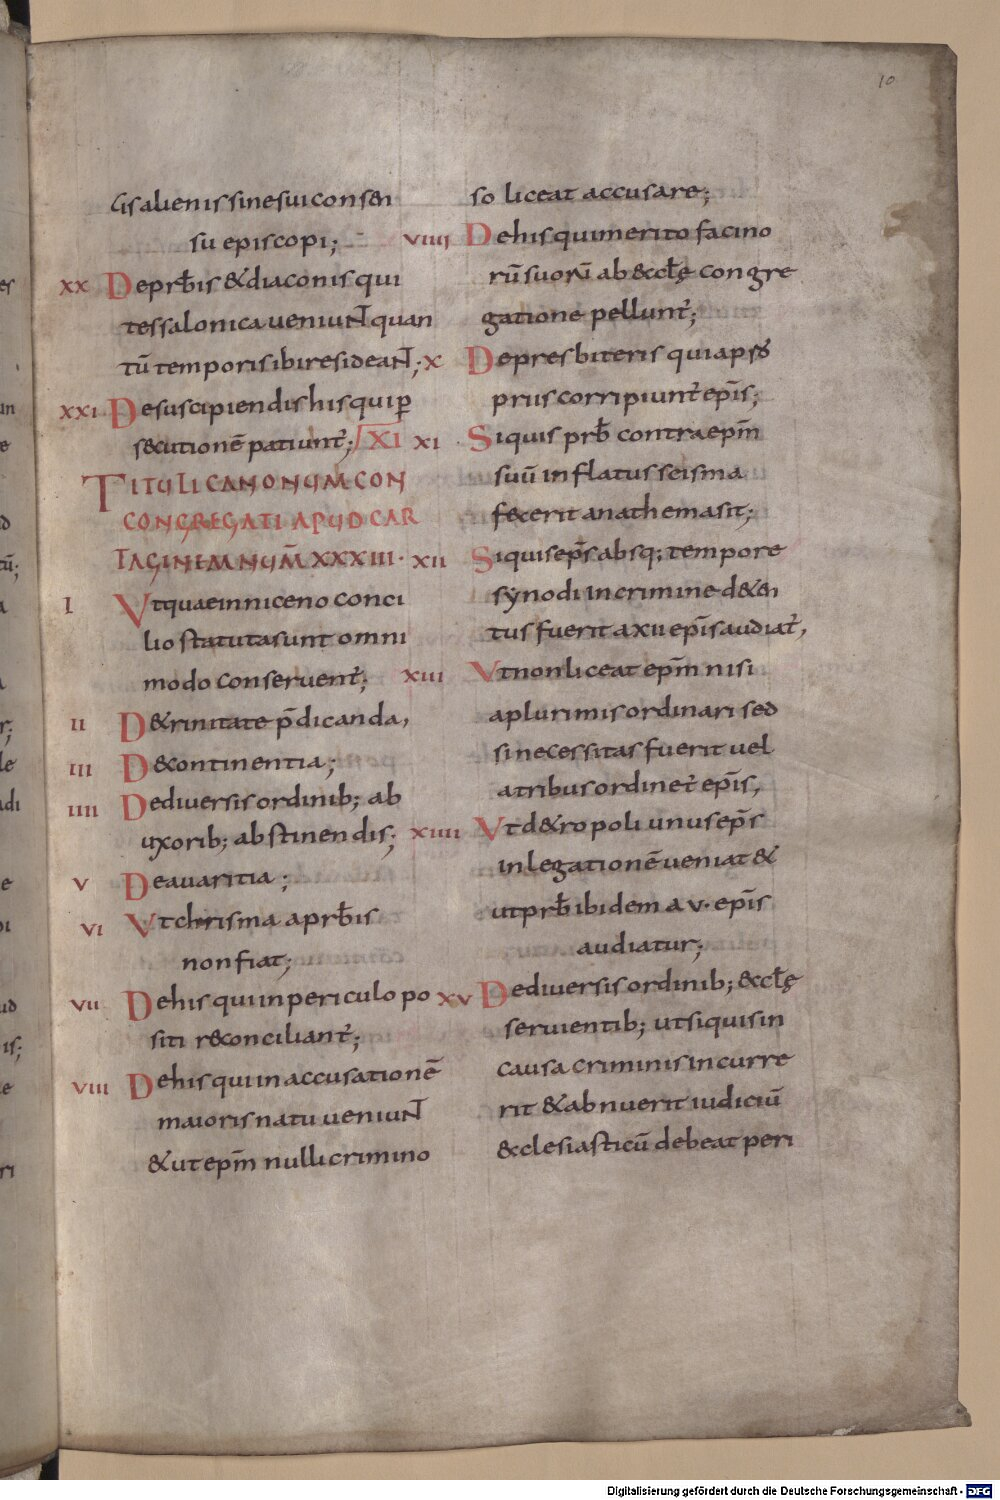 10
lis alienis sine sui consen
su episcopi;
XX De prb̄is & diaconis qui
tessalonica ueniunt quan
tū temporis ibi resideant;
XXI De suscipiendis his qui ꝑ
secutionē patiunt̄; XI
TITULI CANONUM CON
CONGREGATI APUD CAR
TAGINEM NUM̄ XXXIII·
I Vt quae in niceno conci
lio statuta sunt omni
modo conseruent̄;
II D& rinitate p̄dicanda,
III D& continentia;
IIII De diuersis ordinib; ab
uxorib; abstinendis;
V De auaritia;
VI Vt chrisma a prb̄is
non fiat;
VII De his qui in periculo po
siti r&conciliant̄;
VIII De his qui in accusationē
maioris natu ueniunt
& ut ep̄m nulli crimino
so liceat accusare;
VIIII De his qui merito facino
rū suorū ab &cl̄ę congre
gatione pellunt̄;
X De presbiteris qui a ps̄
prus corripiunt̄ ep̄is;
XI Si quis prb̄ contra ep̄m
suū inflatus scisma
f&cerit anathema sit;
XII Si quis ep̄s absq; tempore
synodi in crimine d&en
tus fuerit a xii ep̄is audiat̄,
XIII Vt non liceat ep̄m nisi
a plurimis ordinari sed
si necessitas fuerit uel
a tribus ordinet̄ ep̄is,
XIIII Vt d& ropoli unus ep̄s
in legationē ueniat &
ut prb̄ ibidem a v· ep̄is
audiatur;
XV De diuersis ordinib; &cl̄ę
seruientib; ut si quis in
causa criminis incurre
rit & abnuerit iudiciū
&clesiasticū debeat peri
Digitalisierung gefördert durch die Deutsche Forschungsgemeinschaft - DFG